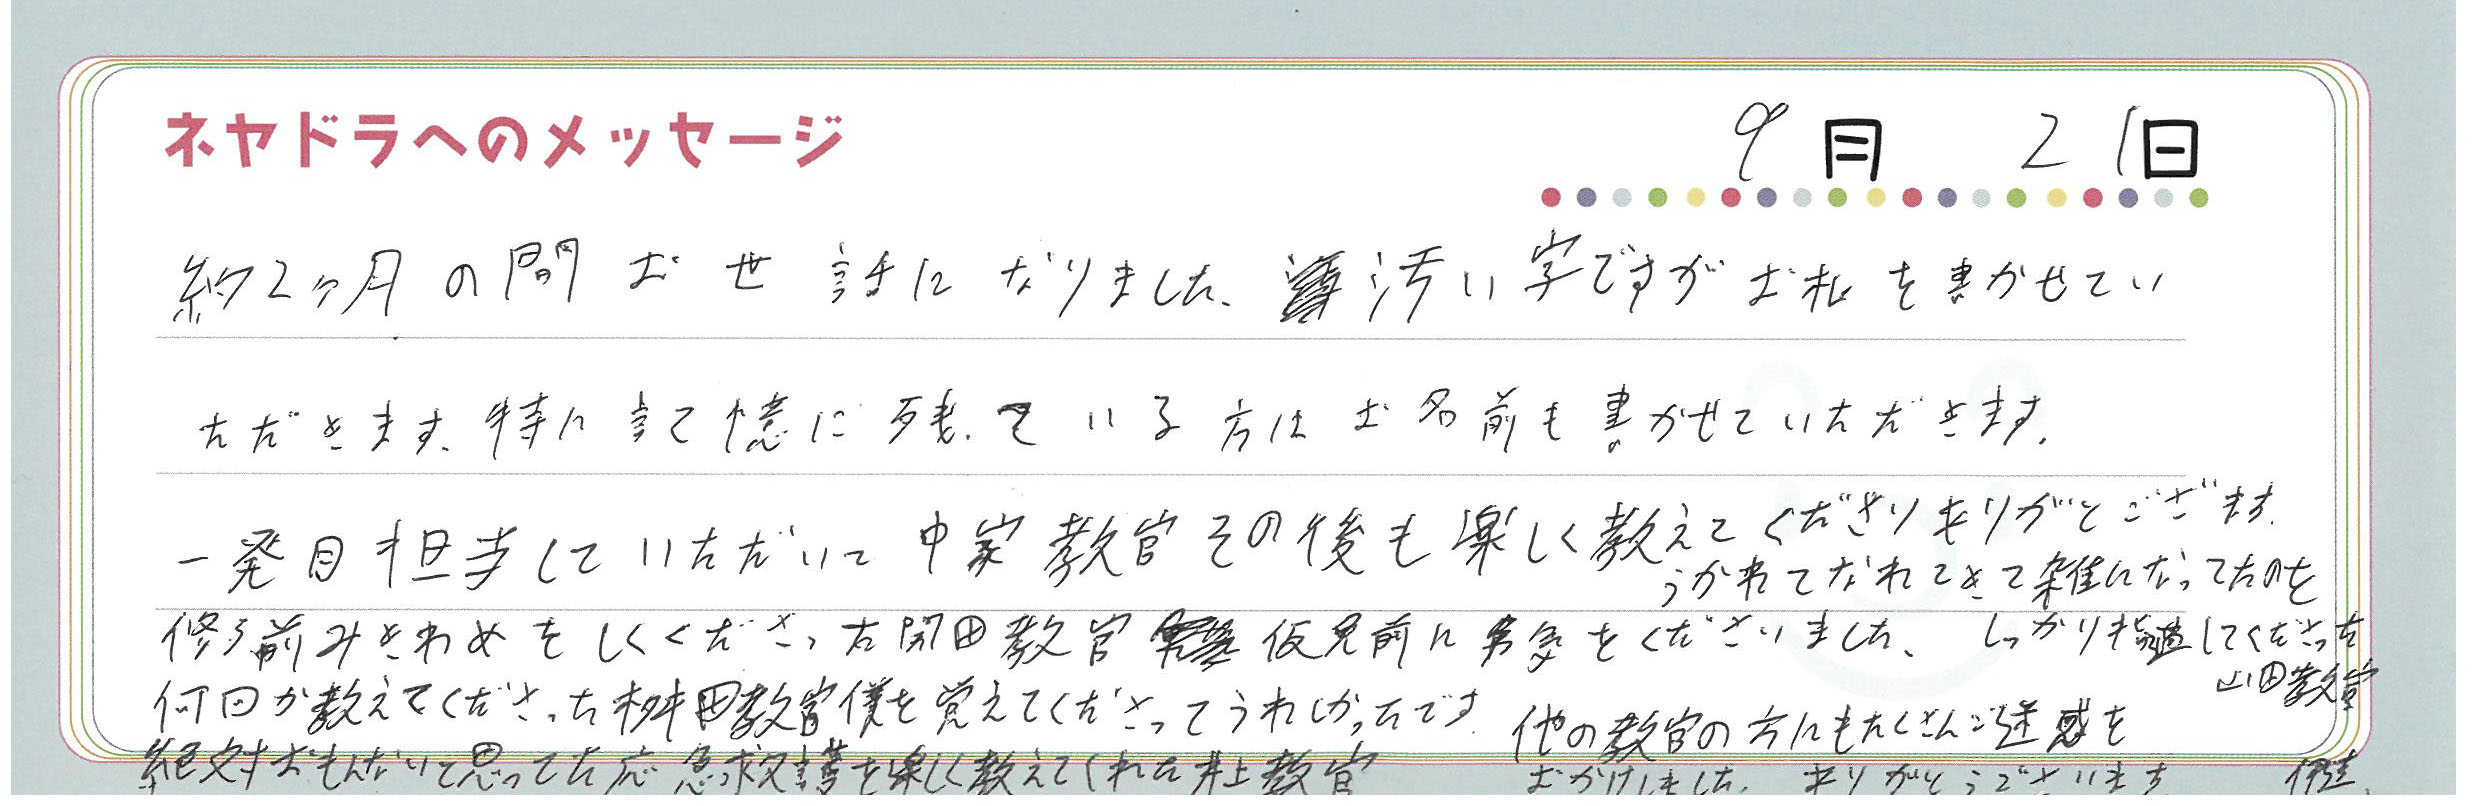 ネヤドラへのメッセージ
9月 21日
約2ヶ月の間お世話になりました、汚い字ですがお礼を書かせてい
ただきます、特に記憶に残っている方はお名前も書かせていただきます。
一発目担当していただいて中家教官その後も楽しく教えてくださりありがとございます。
うかれてなれてきて雑になってたのを
しっかり指適してくださった
山田教官
修了前みきわめをしてくださった開田教官 仮免前に勇気をくださいました、
何回か教えてくださった桝田教官僕を覚えてくださってうれしかったです
絶対おもんないと思ってた応急救護を楽しく教えてくれた井上教官
他の教官の方にもたくさんご迷惑を
おかけしました、ありがとうございます